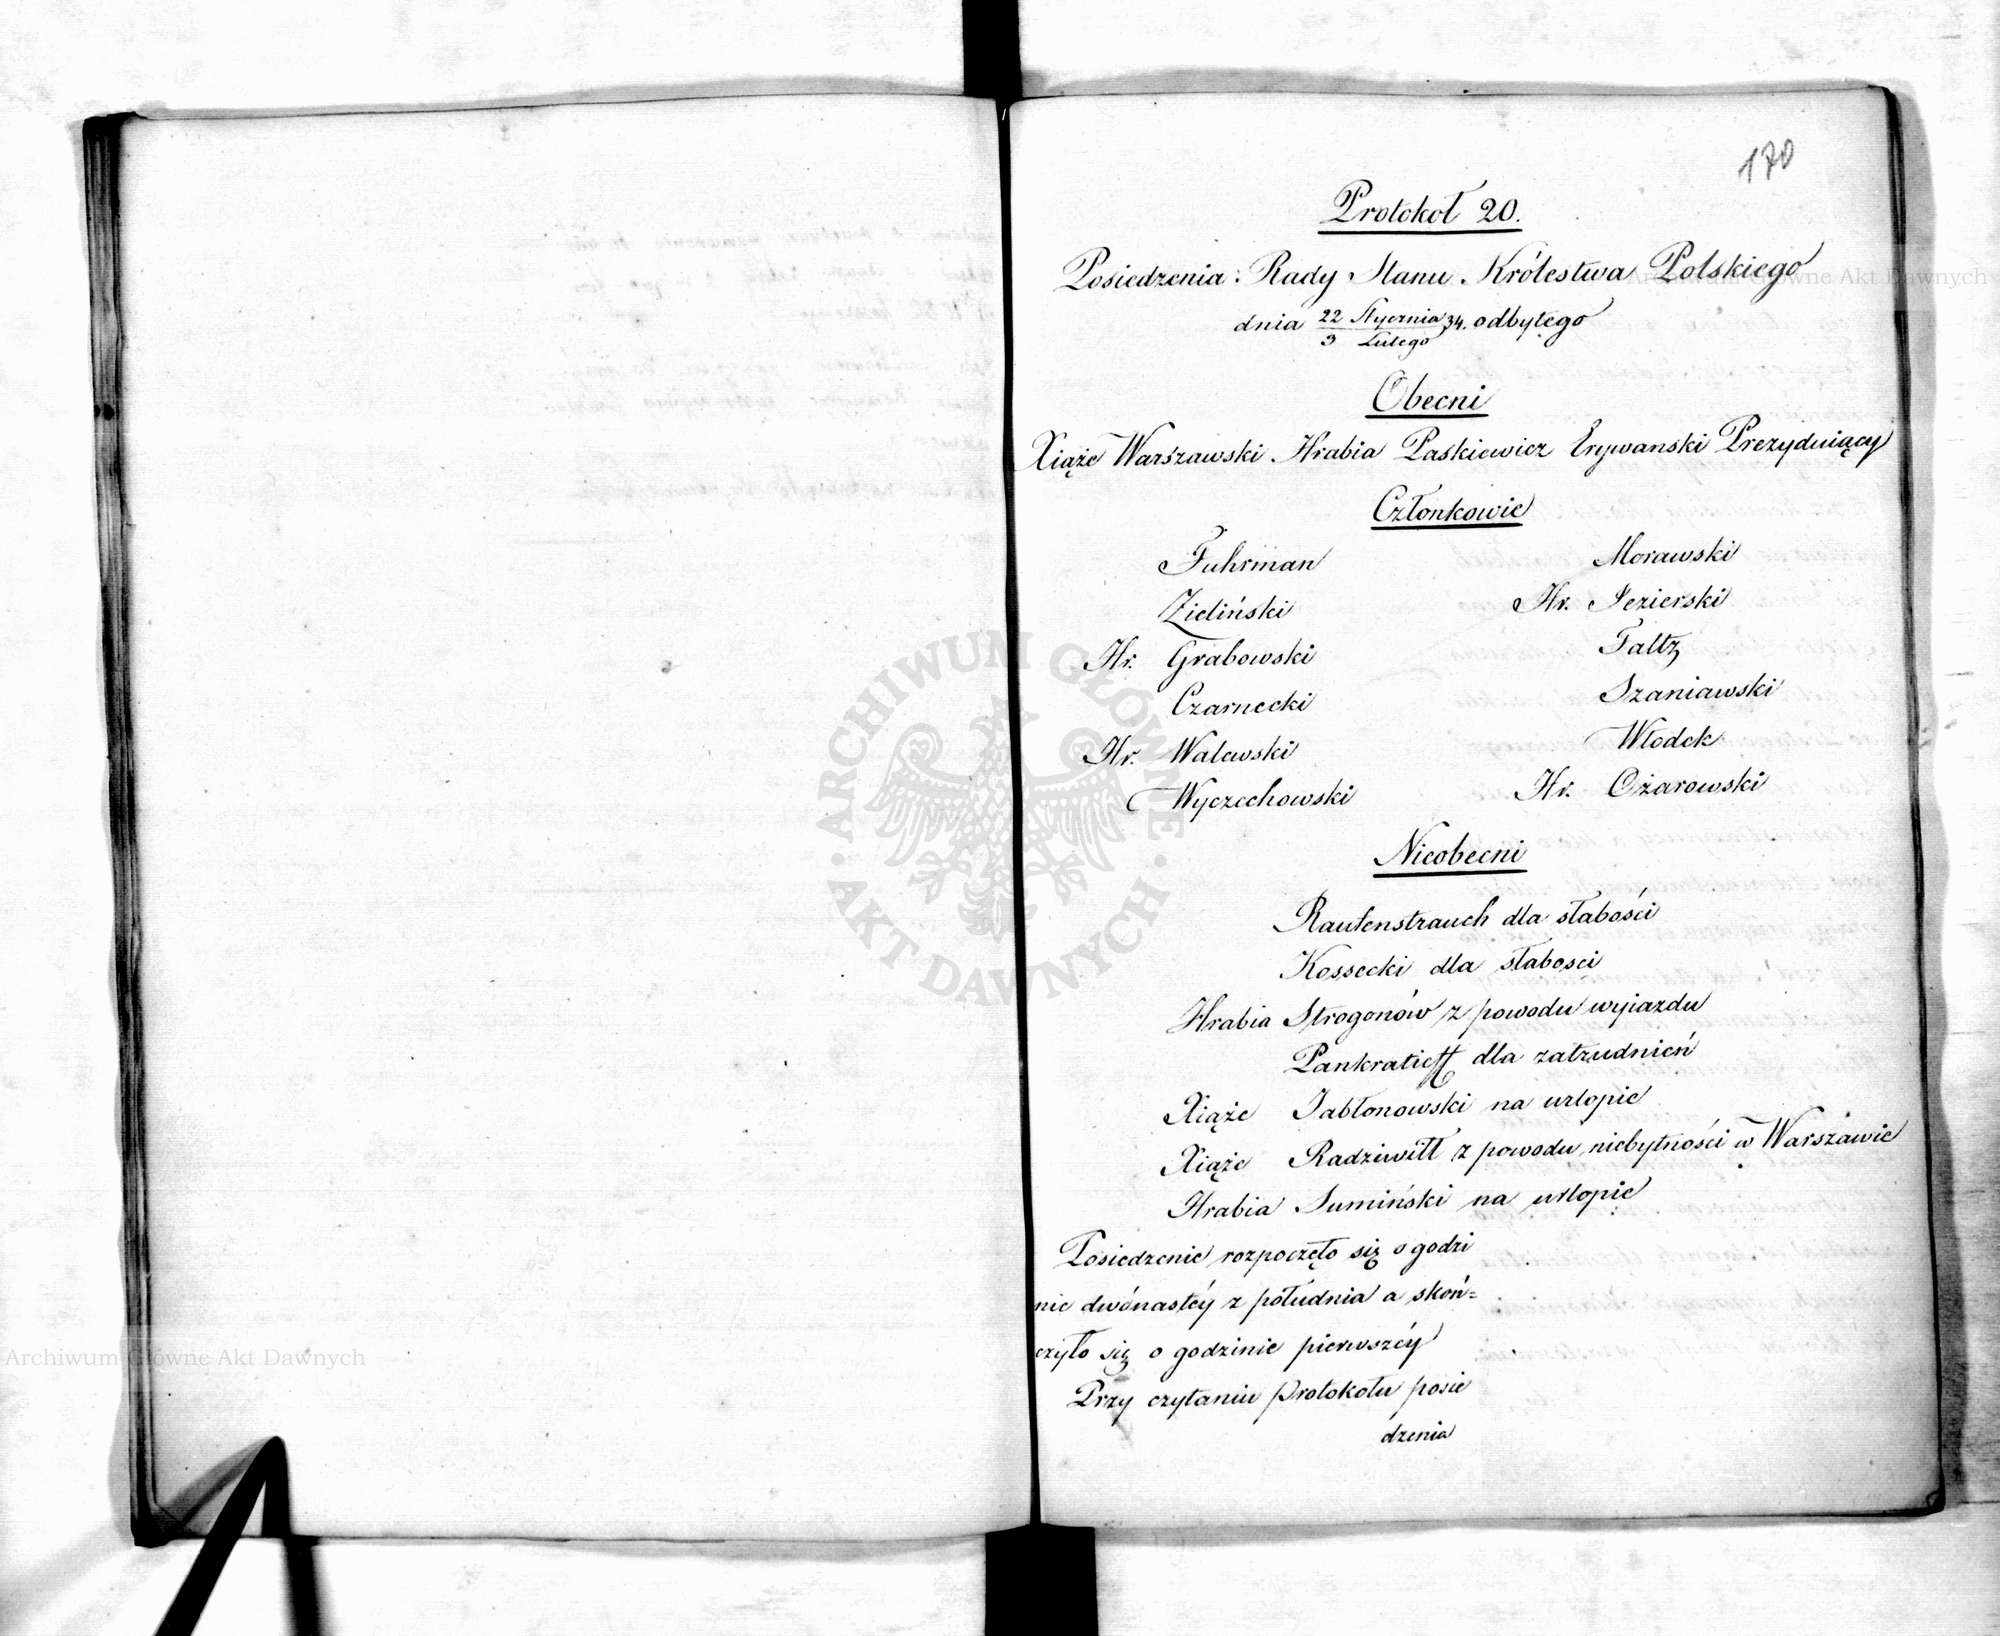 170
Protokoł 20.
Posiedzenia Rady Stanu Królestwa Polskiego
dnia 22 Stycznia / 3 Lutego 34. odbytego
Obecni
Xiąże Warszawski Hrabia Paskiewicz Erywanski Prezyduiący
Członkowie
Fuhrman
Zieliński
Hr. Grabowski
Czarnecki
Hr. Walewski
Wyczechowski
Morawski
Hr. Jezierski
Faltz
Szaniawski
Włodek
Hr. Ożarowski
Nieobecni
Rautenstrauch dla słabości
Kossecki dla słabosci
Hrabia Strogonów z powodu wyiazdu
Pankratieff dla zatrudnień
Xiąże Jabłonowski na urlopie
Xiąże Radziwiłł z powodu niebytności w Warszawie
Hrabia Sumiński na urlopie
Posiedzenie rozpoczęło się o godzi
nie dwónastéy z południa a skoń=
czyło się o godzinie pierwszéy
Przy czytaniu Protokołu posie
dzenia
ARCHIWUM GŁÓWNE AKT DAWNYCH
Archiwum Główne Akt Dawnych
Archiwum Główne Akt Dawnych